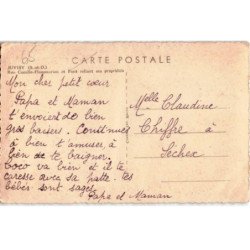 CARTE POSTALE
JUVISY (S.-et-O.)
Rue Camille-Flammarion et Pont reliant ses propriétés
Mon cher petit cœur
Papa et Maman
t envoient de bien
gros baisers. Continues
à bien t amuser, à
bien de te baigner.
Coco va bien et il te
caresse avec sa patte. les
bébés sont sages.
Papa et Maman
Melle Claudine
Chiffre à
Séchex